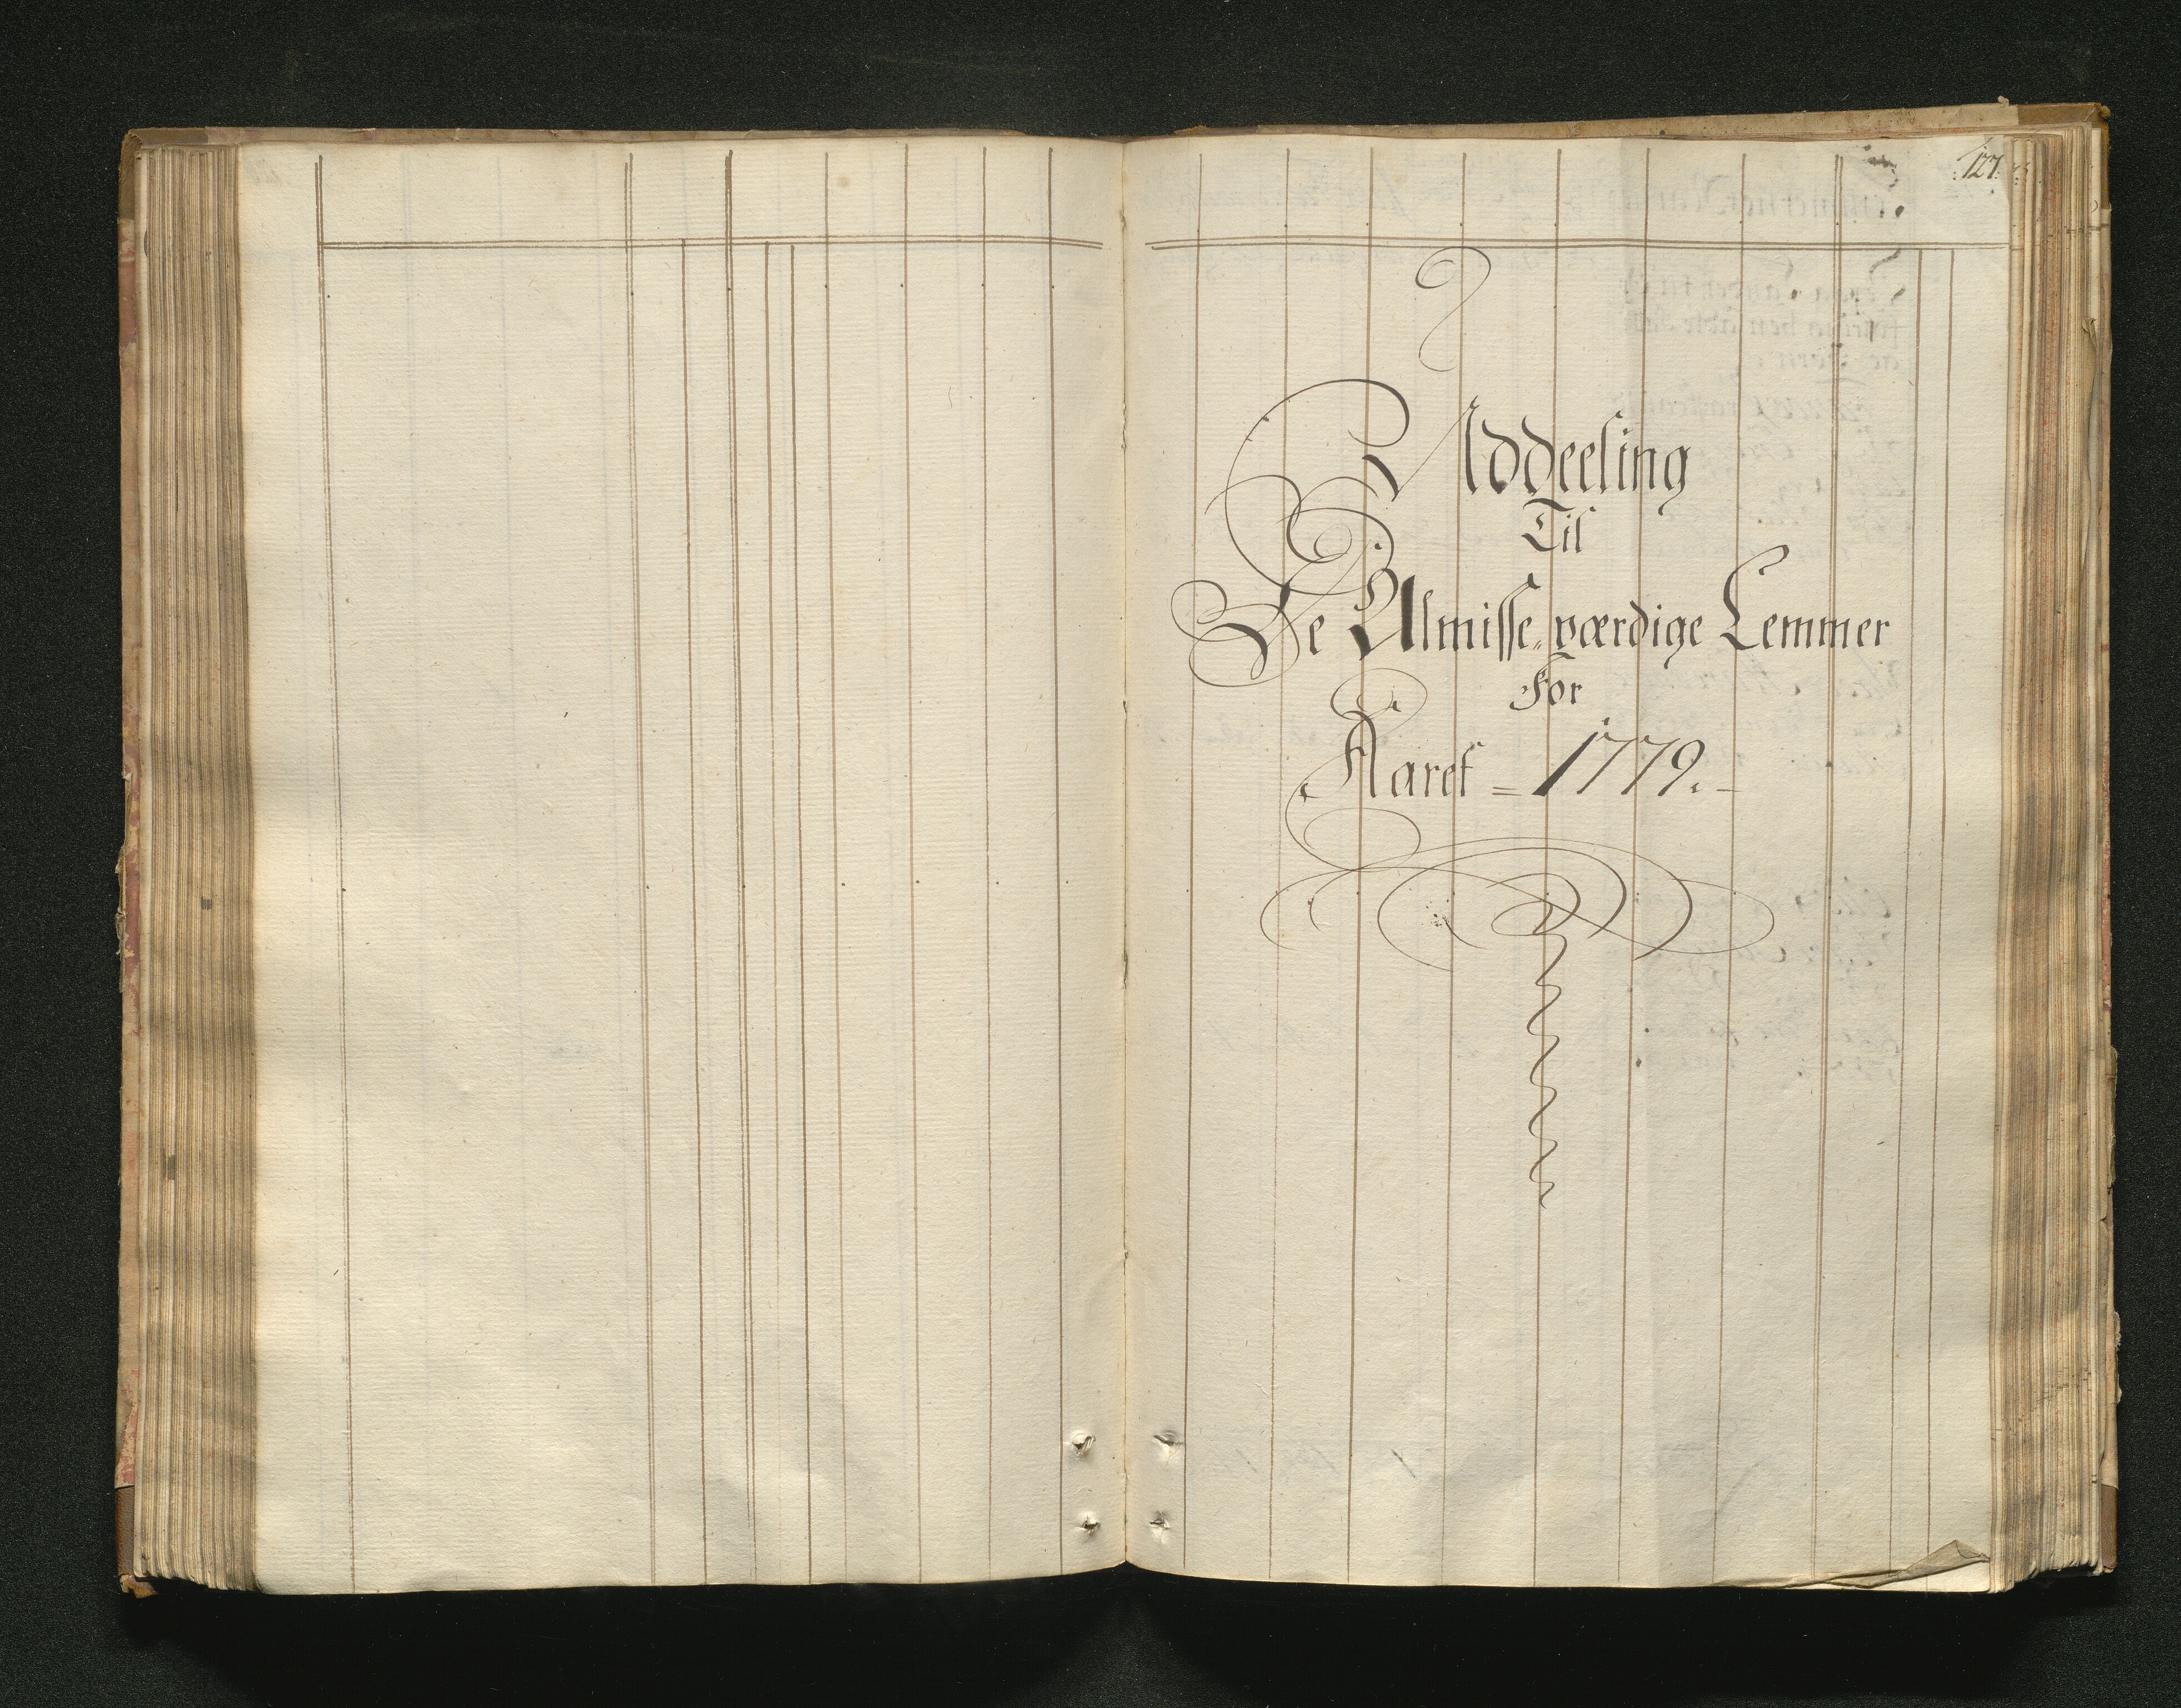 127.
Uddeeling
Til
De Almisse-værdige Lemmer
For
Aaret = 1779. -